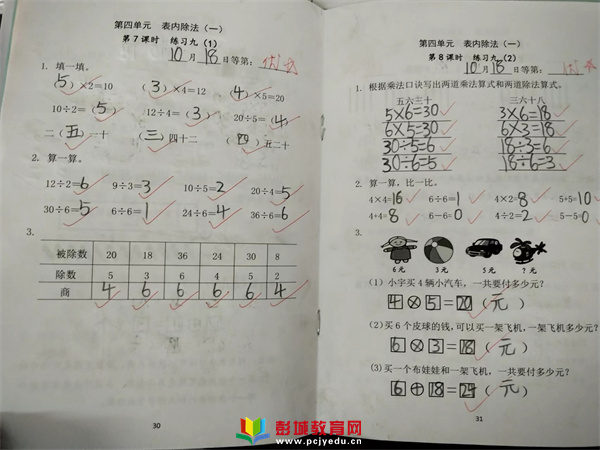 第四单元 表内除法(一)
第7课时 练习九(1)
10月18日等第:优
1. 填一填。
(5)×2=10 (3)×4=12 (4)×5=20
10÷2=(5) 12÷4=(3) 20÷5=(4)
二(五)一十 (三)四十二 (四)五二十
2. 算一算。
12÷2=6 9÷3=3 10÷5=2 20÷4=5
30÷6=5 6÷6=1 24÷6=4 36÷6=6
3.
被除数 20 18 36 24 30 8
除数 5 3 6 4 5 2
商 4 6 6 6 6 4
30
第四单元 表内除法(一)
第8课时 练习九(2)
10月18日等第:优
1. 根据乘法口诀写出两道乘法算式和两道除法算式。
五六三十 三六十八
5×6=30 3×6=18
6×5=30 6×3=18
30÷5=6 18÷3=6
30÷6=5 18÷6=3
2. 算一算,比一比。
4×4=16 6÷6=1 4×2=8 5+5=10
4+4=8 6−6=0 4÷2=2 5−5=0
3.
6元 3元 5元 ?元
(1)小宇买4辆小汽车,一共要付多少元?
4×5=20(元)
(2)买6个皮球的钱,可以买一架飞机,一架飞机多少元?
6×3=18(元)
(3)买一个布娃娃和一架飞机,一共要付多少元?
6+18=24(元)
31
彭城教育网
www.pcjyedu.cn